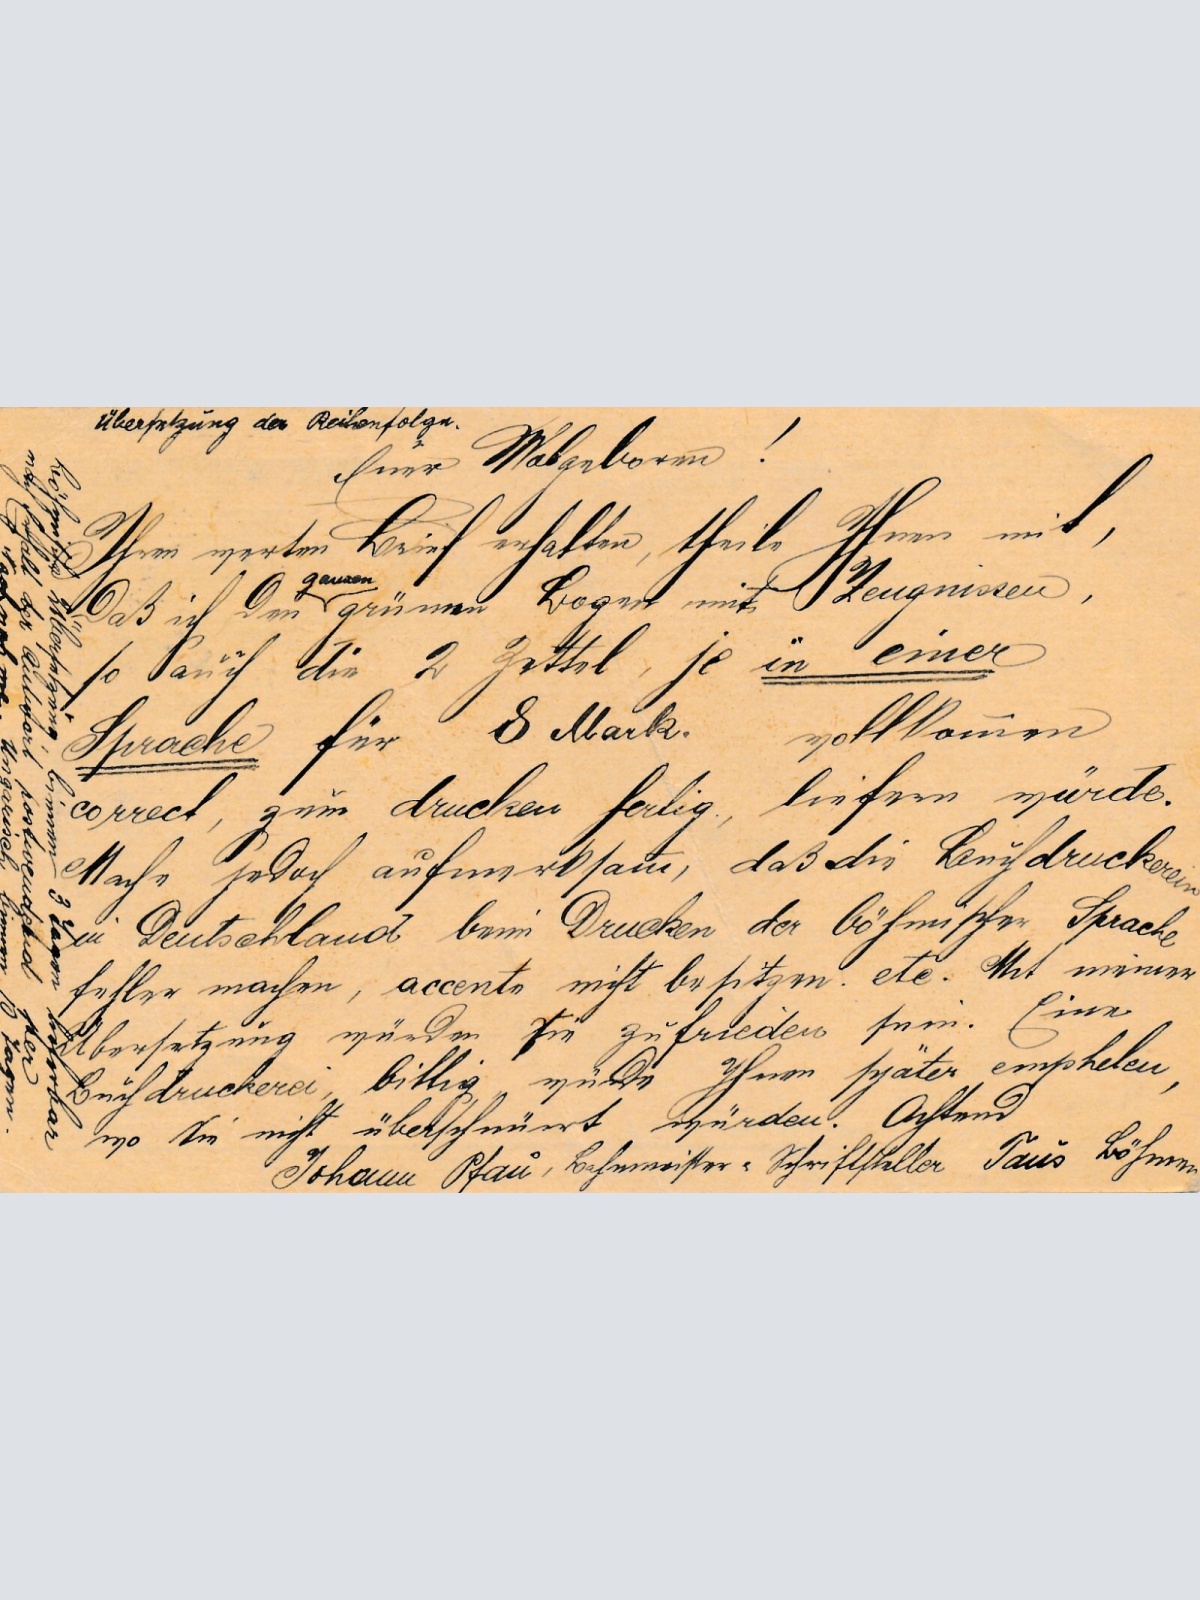 Übersetzung der Reihenfolge.
Euer Wolgeboren !
Ihren werten Brief erhalten, theile Ihnen mit,
Daß ich den ganzen grünen Bogen mit Zeugnissen,
so auch die 2 Zettel, je in einer
Sprache für 8 Mark. vollkommen
correct, zum drucken fertig, liefern würde.
Mache jedoch aufmerksam, daß die Buchdruckereien
in Deutschland beim Drucken der böhmischer Sprache
fehler machen, accente nicht besitzen. etc. Mit meiner
Übersetzung würden Sie zufrieden sein. Eine
Buchdruckerei, billig, würde Ihnen später emphelen,
wo Sie nicht überschnürt würden. Achtend
Johann Pfau, Lehrmeister = Schriftsteller Taus Böhmen
böhmische binnen 3 Tagen lieferbar
nach Erhalt der Antwort postwendend
Nachnahme. Ungarisch binnen 10 Tagen.